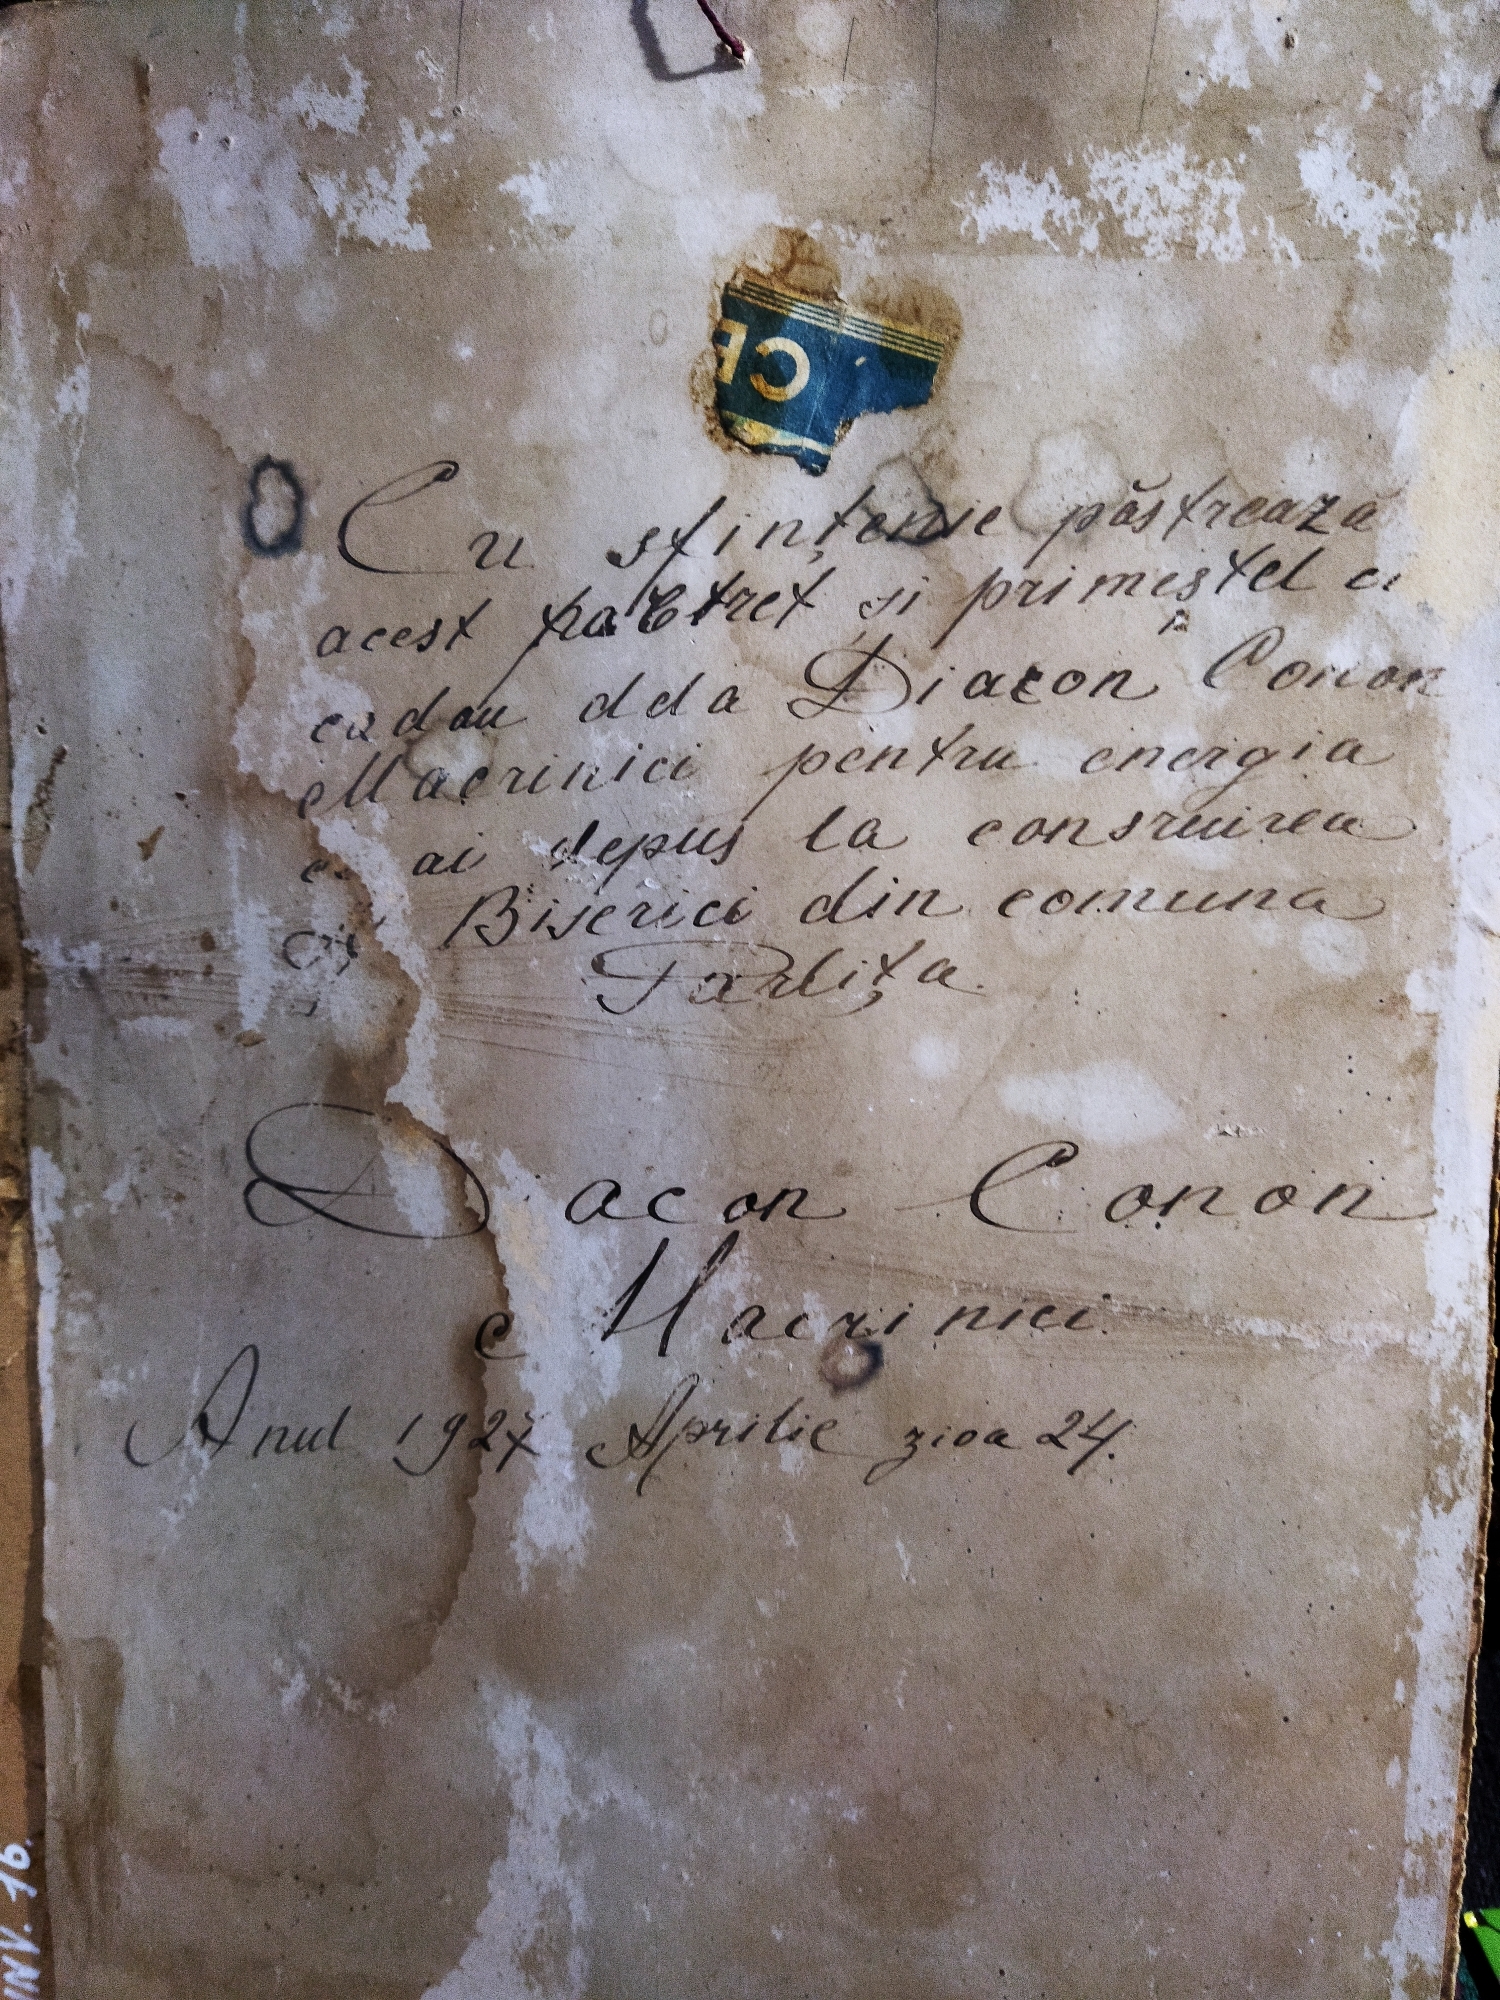 Cu sfințenie păstrează
acest portret și primeștel ca
cadau dela Diacon Conon
Macrinici pentru energia
ai depus la consruirea
Biserici din comuna
Parlița
Diacon Conon
Macrinici
Anul 1927 Aprilie zioa 24.
INV. 76.